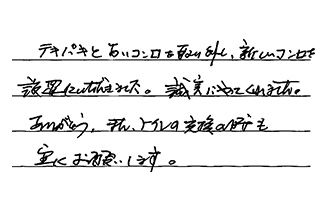 テキパキと古いコンロを取り外し、新しいコンロを
設置していただきました。誠実にやってくれました。
ありがとう。また、トイレの交換の時も
宜しくお願いします。